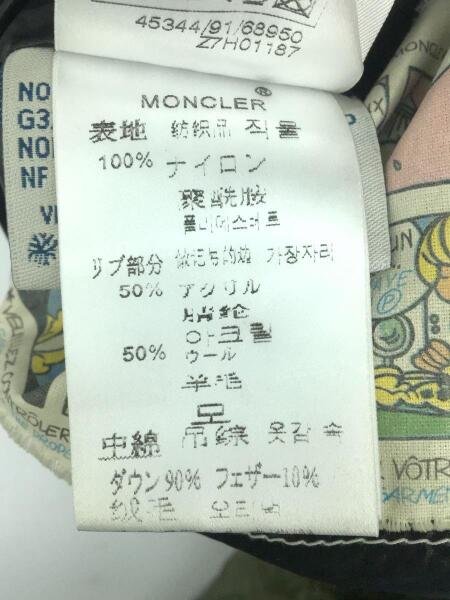 45344/91/68950
Z7H01187
MONCLER®
表地 纺织品 직물
100% ナイロン
聚酰胺
폴리에스테르
リブ部分 가장자리
50% アクリル
腈纶
아크릴
50% ウール
羊毛
모
中綿 吊综 옷감 속
ダウン90% フェザー10%
绒毛
NO
G3
NO
NF
VÔTR
GARMEN